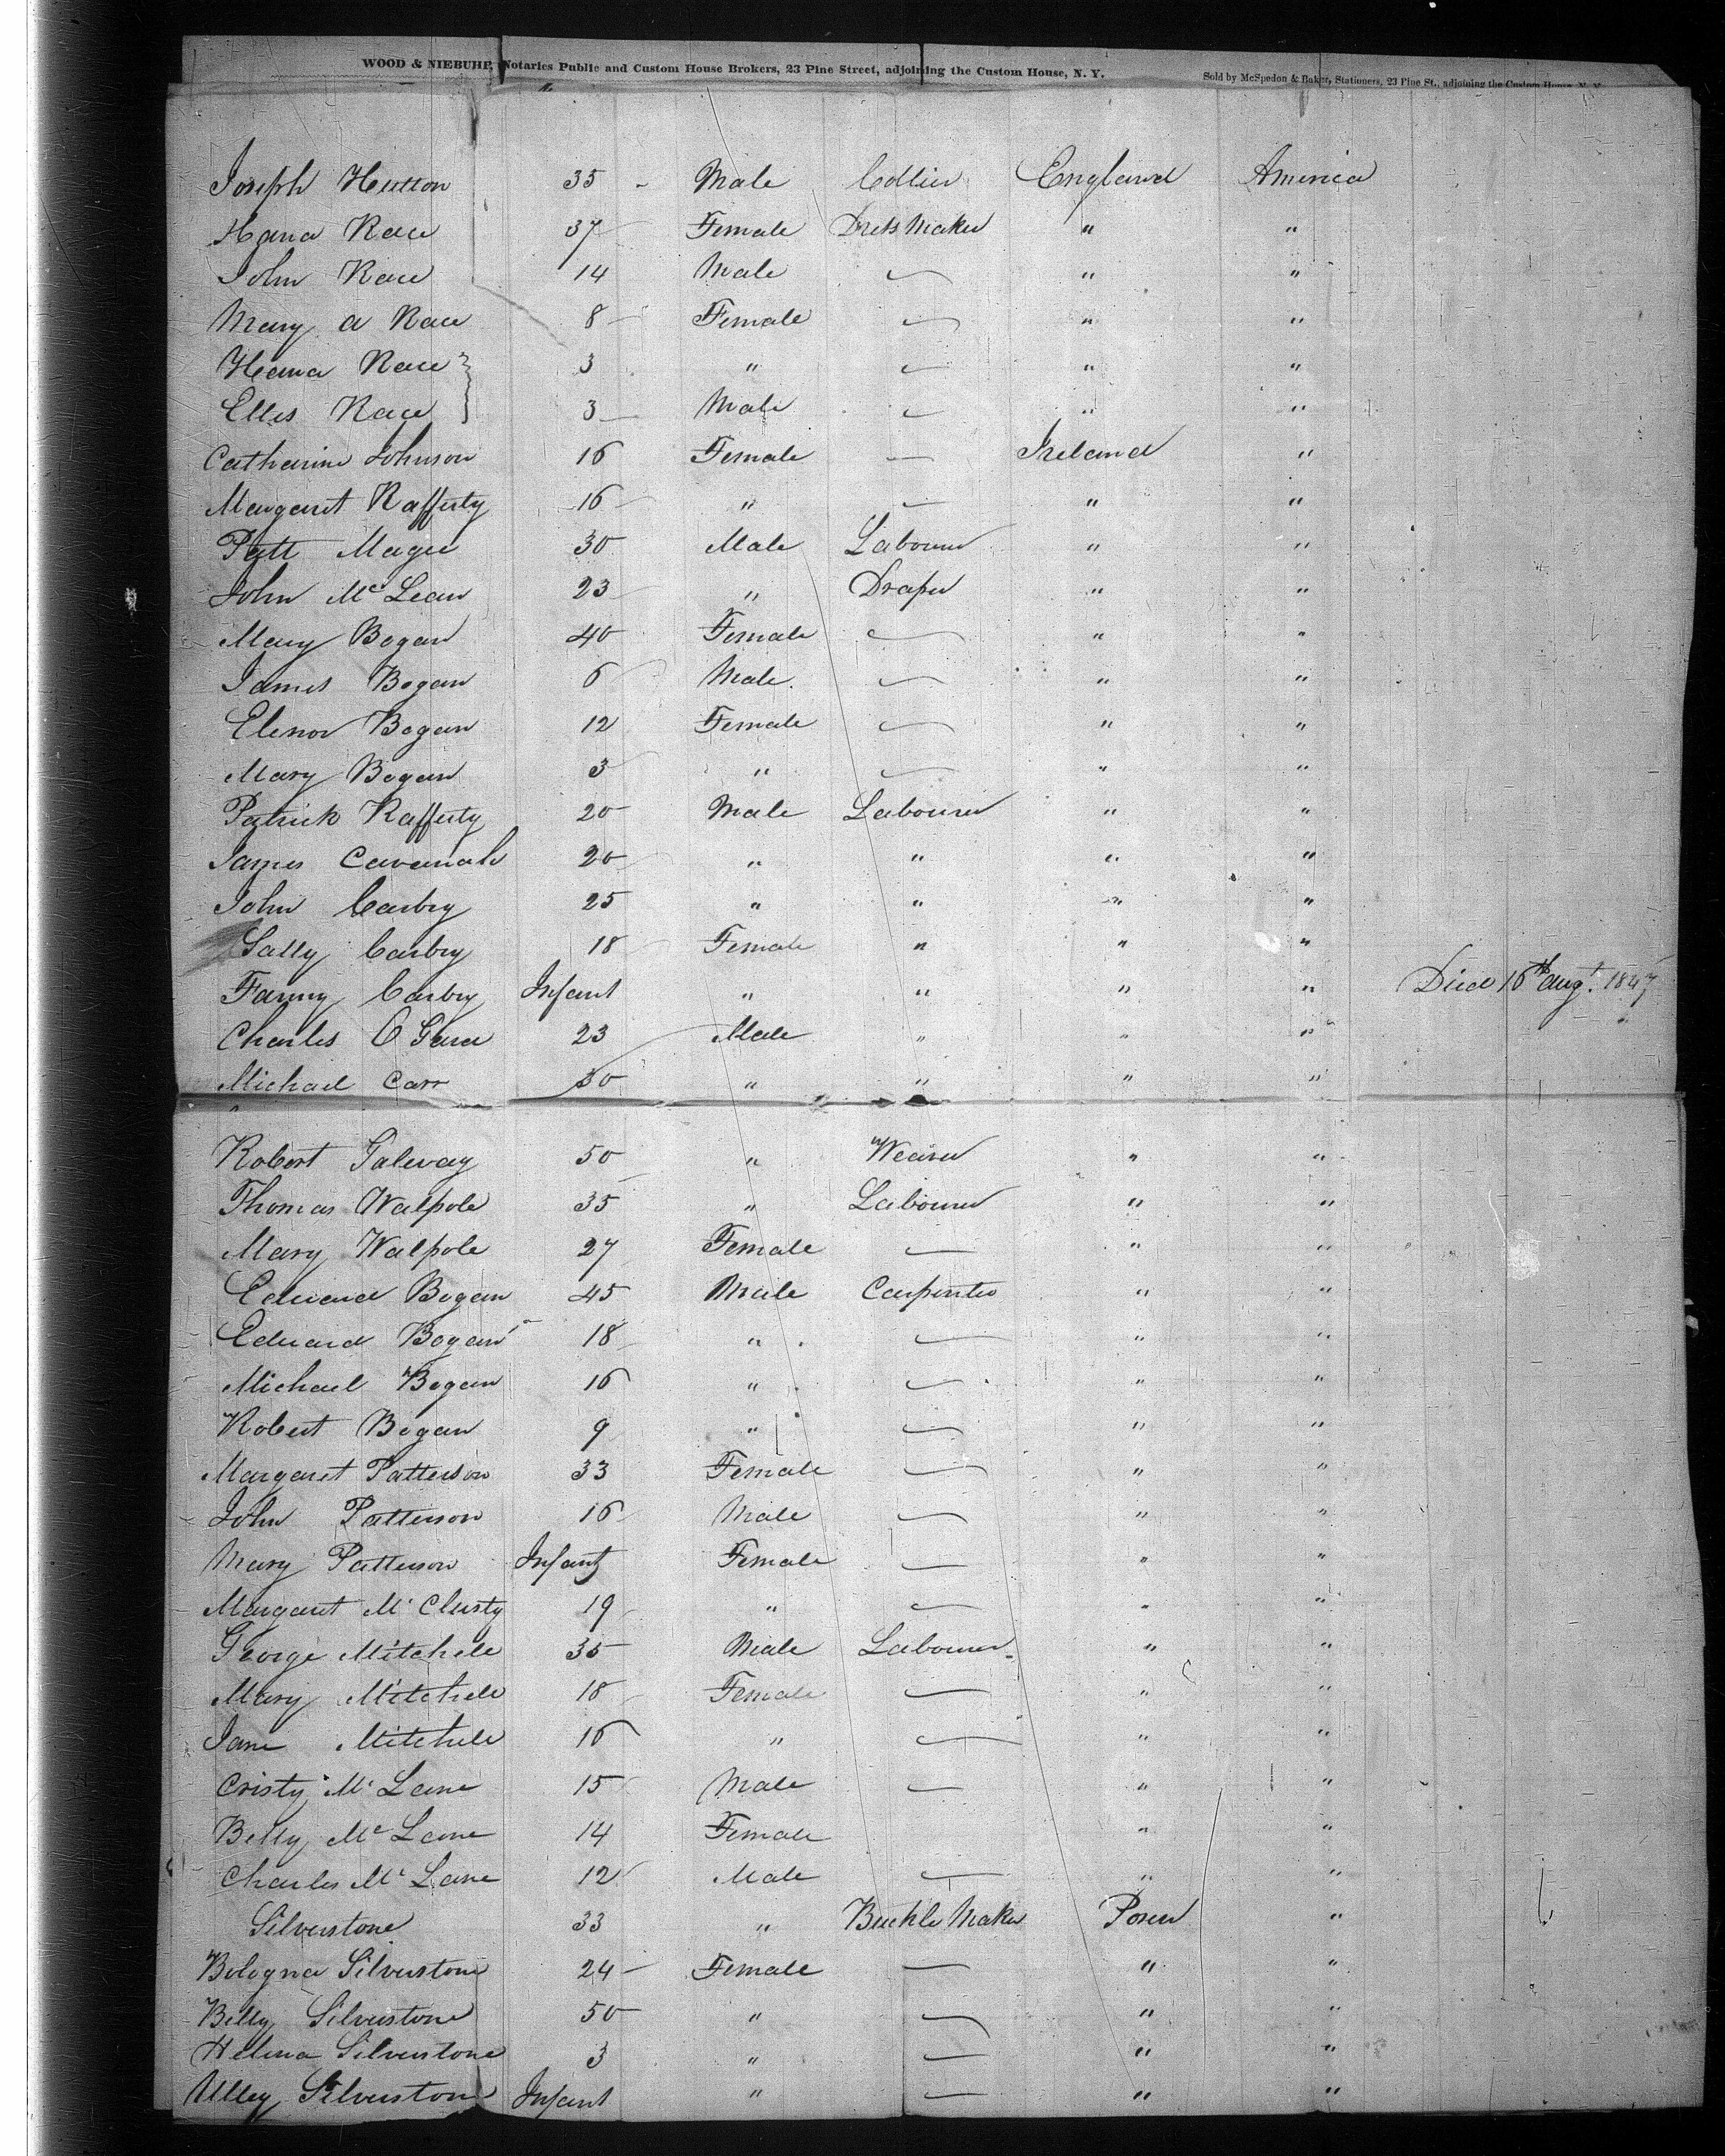 WOOD & NIEBUHR, Notaries Public and Custom House Brokers, 23 Pine Street, adjoining the Custom House, N. Y.
Sold by McSpedon & Baker, Stationers, 23 Pine St., adjoining the Custom House, N. Y.
Joseph Hutton 35 - Male Collier England America
Hana Race 37 Female Dress Maker " "
John Race 14 Male — " "
Mary A Race 8 Female — " "
Hana Race 3 " — " "
Ellis Race 3 Male — " "
Catharine Johnson 16 Female — Ireland "
Margaret Rafferty 16 " — " "
Patt Magee 30 Male Labourer " "
John McLean 23 " Draper " "
Mary Bogan 40 Female — " "
James Bogan 6 Male — " "
Elenor Bogan 12 Female — " "
Mary Bogan 3 " — " "
Patrick Rafferty 20 Male Labourer " "
James Cavanah 20 " " " "
John Carbry 25 " " " "
Sally Carbry 18 Female " " "
Fanny Carbry Infant " " " " Died 16th Augt. 1847
Charles O Gara 23 Male " " "
Michael Carr 30 " " " "
Robert Galway 50 " Weaver " "
Thomas Walpole 35 " Labourer " "
Mary Walpole 27 Female — " "
Edward Bogan 45 Male Carpenter " "
Edward Bogan 18 " — " "
Michael Bogan 16 " — " "
Robert Bogan 9 " — " "
Margaret Patterson 33 Female — " "
John Patterson 16 Male — " "
Mary Patterson Infant Female — " "
Margaret Mc Clusty 19 " — " "
George Mitchele 35 Male Labourer " "
Mary Mitchele 18 Female — " "
Jane Mitchele 16 " — " "
Cristy Mc Lane 15 Male — " "
Betty Mc Lane 14 Female " "
Charles Mc Lane 12 Male — " "
Silverstone 33 " Buckle Maker Posen "
Bologna Silverstone 24 Female — " "
Betty Silverstone 50 " — " "
Helena Silverstone 3 " — " "
Ulley Silverstone Infant " — " "